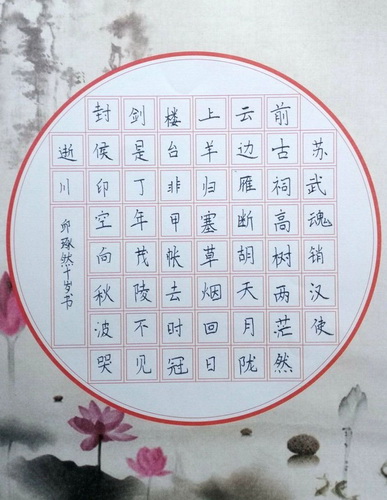 苏武魂销汉使
前古祠高树两茫然
云边雁断胡天月陇
上羊归塞草烟回日
楼台非甲帐去时冠
剑是丁年茂陵不见
封侯印空向秋波哭
逝川
邱琢然十岁书